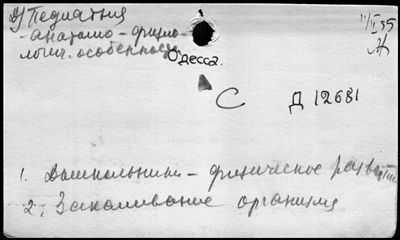 Д) Педиатрия
11/II 55
- анатомо-физио-
логич. особенности
Одесса.
С Д 12681
1. Дошкольники - физическое развитие
2. Закаливание организма